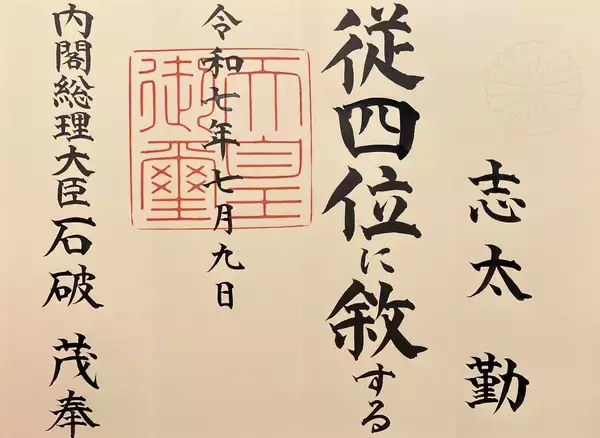 志太 勤
従四位に敘する
令和七年七月九日
天皇御璽
内閣総理大臣 石破 茂 奉